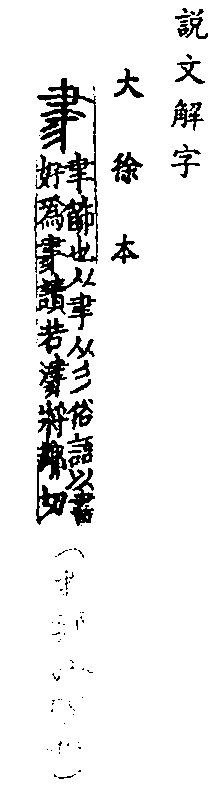 説文解字
大徐本
𦘔
聿飾也从聿从彡俗語以書
好爲𦘔讀若津將鄰切